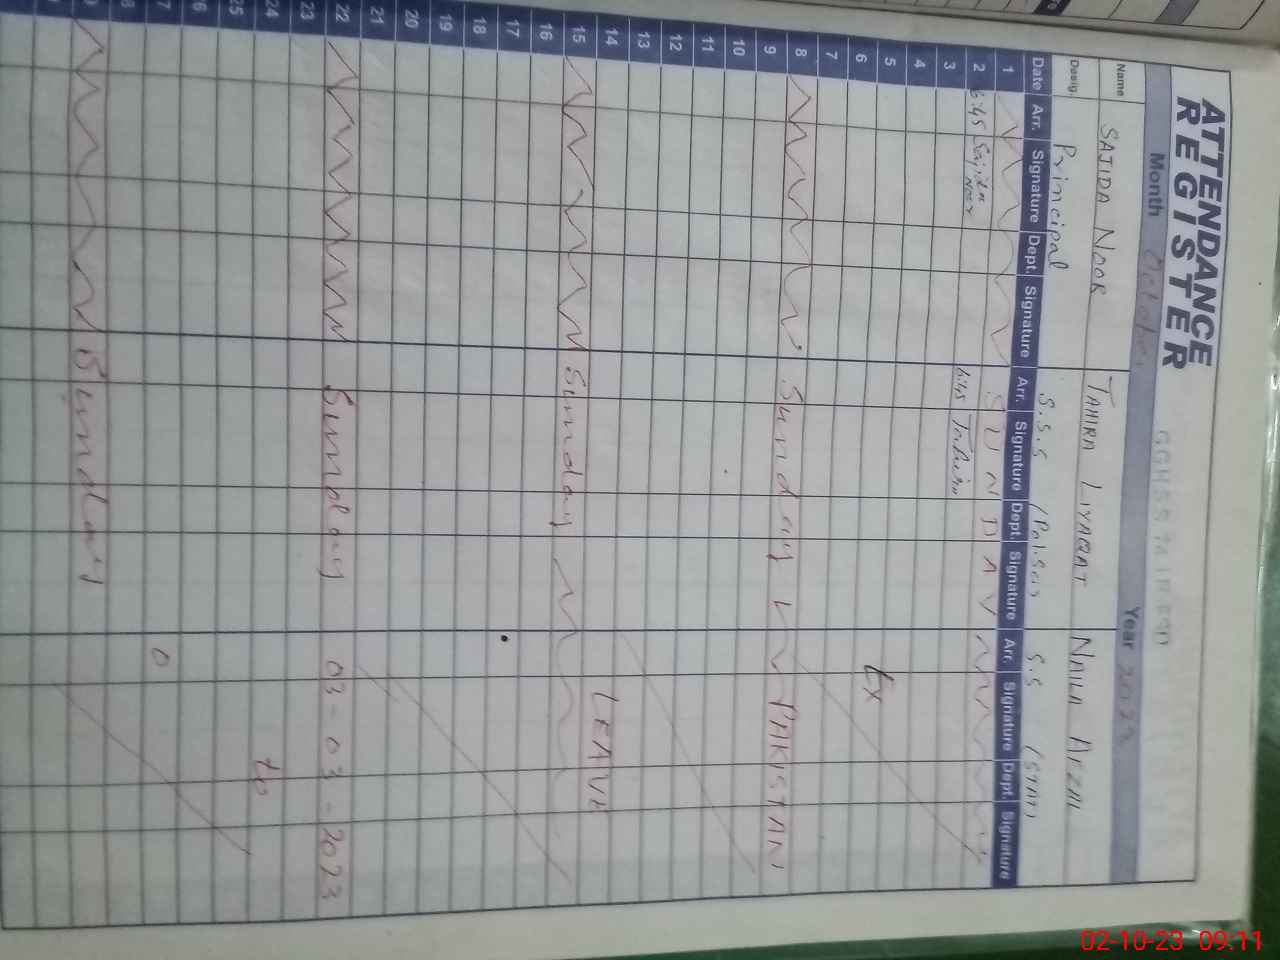 ATTENDANCE
REGISTER
Month October Year 2023
Name SAJIDA NOOR TAHIRA LIYAQAT NAILA AFZAL
Desig Principal S.S.S (Pol.Sci) S.S (STAT)
Date Arr. Signature Dept. Signature Arr. Signature Dept. Signature Arr. Signature Dept. Signature
1 SUNDAY
2 6:45 Sajida Noor 6:45 Tahira
3
4
5
6 Ex
7
8 Sunday PAKISTAN
9
10
11
12
13
14 LEAVE
15 Sunday
16
17
18
19
20
21
22 Sunday 03-03-2023
23
24 to
25
26
27 0
28
Sunday
02-10-23 09:11